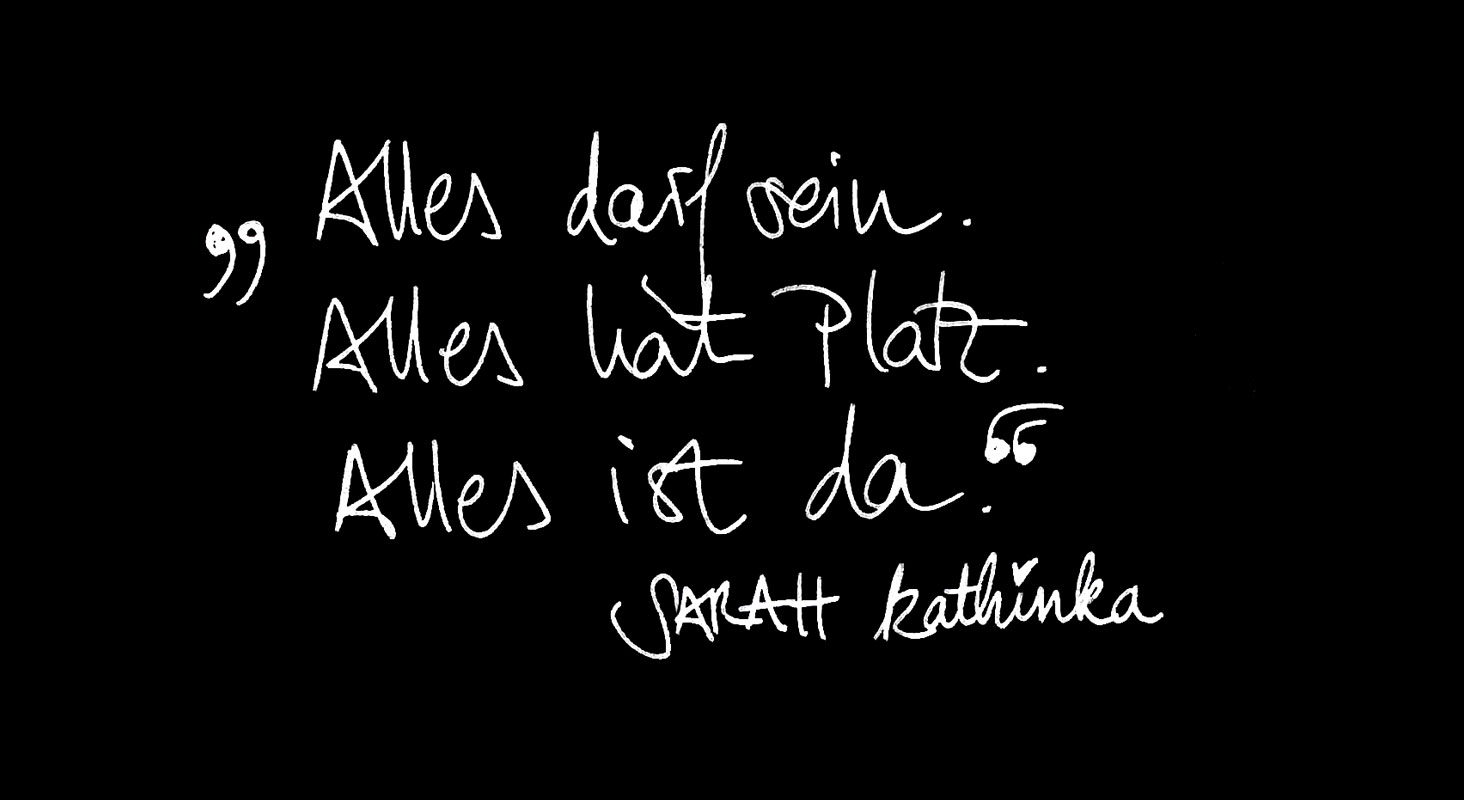 „Alles darf sein.
Alles hat Platz.
Alles ist da.“
SARAH kathinka